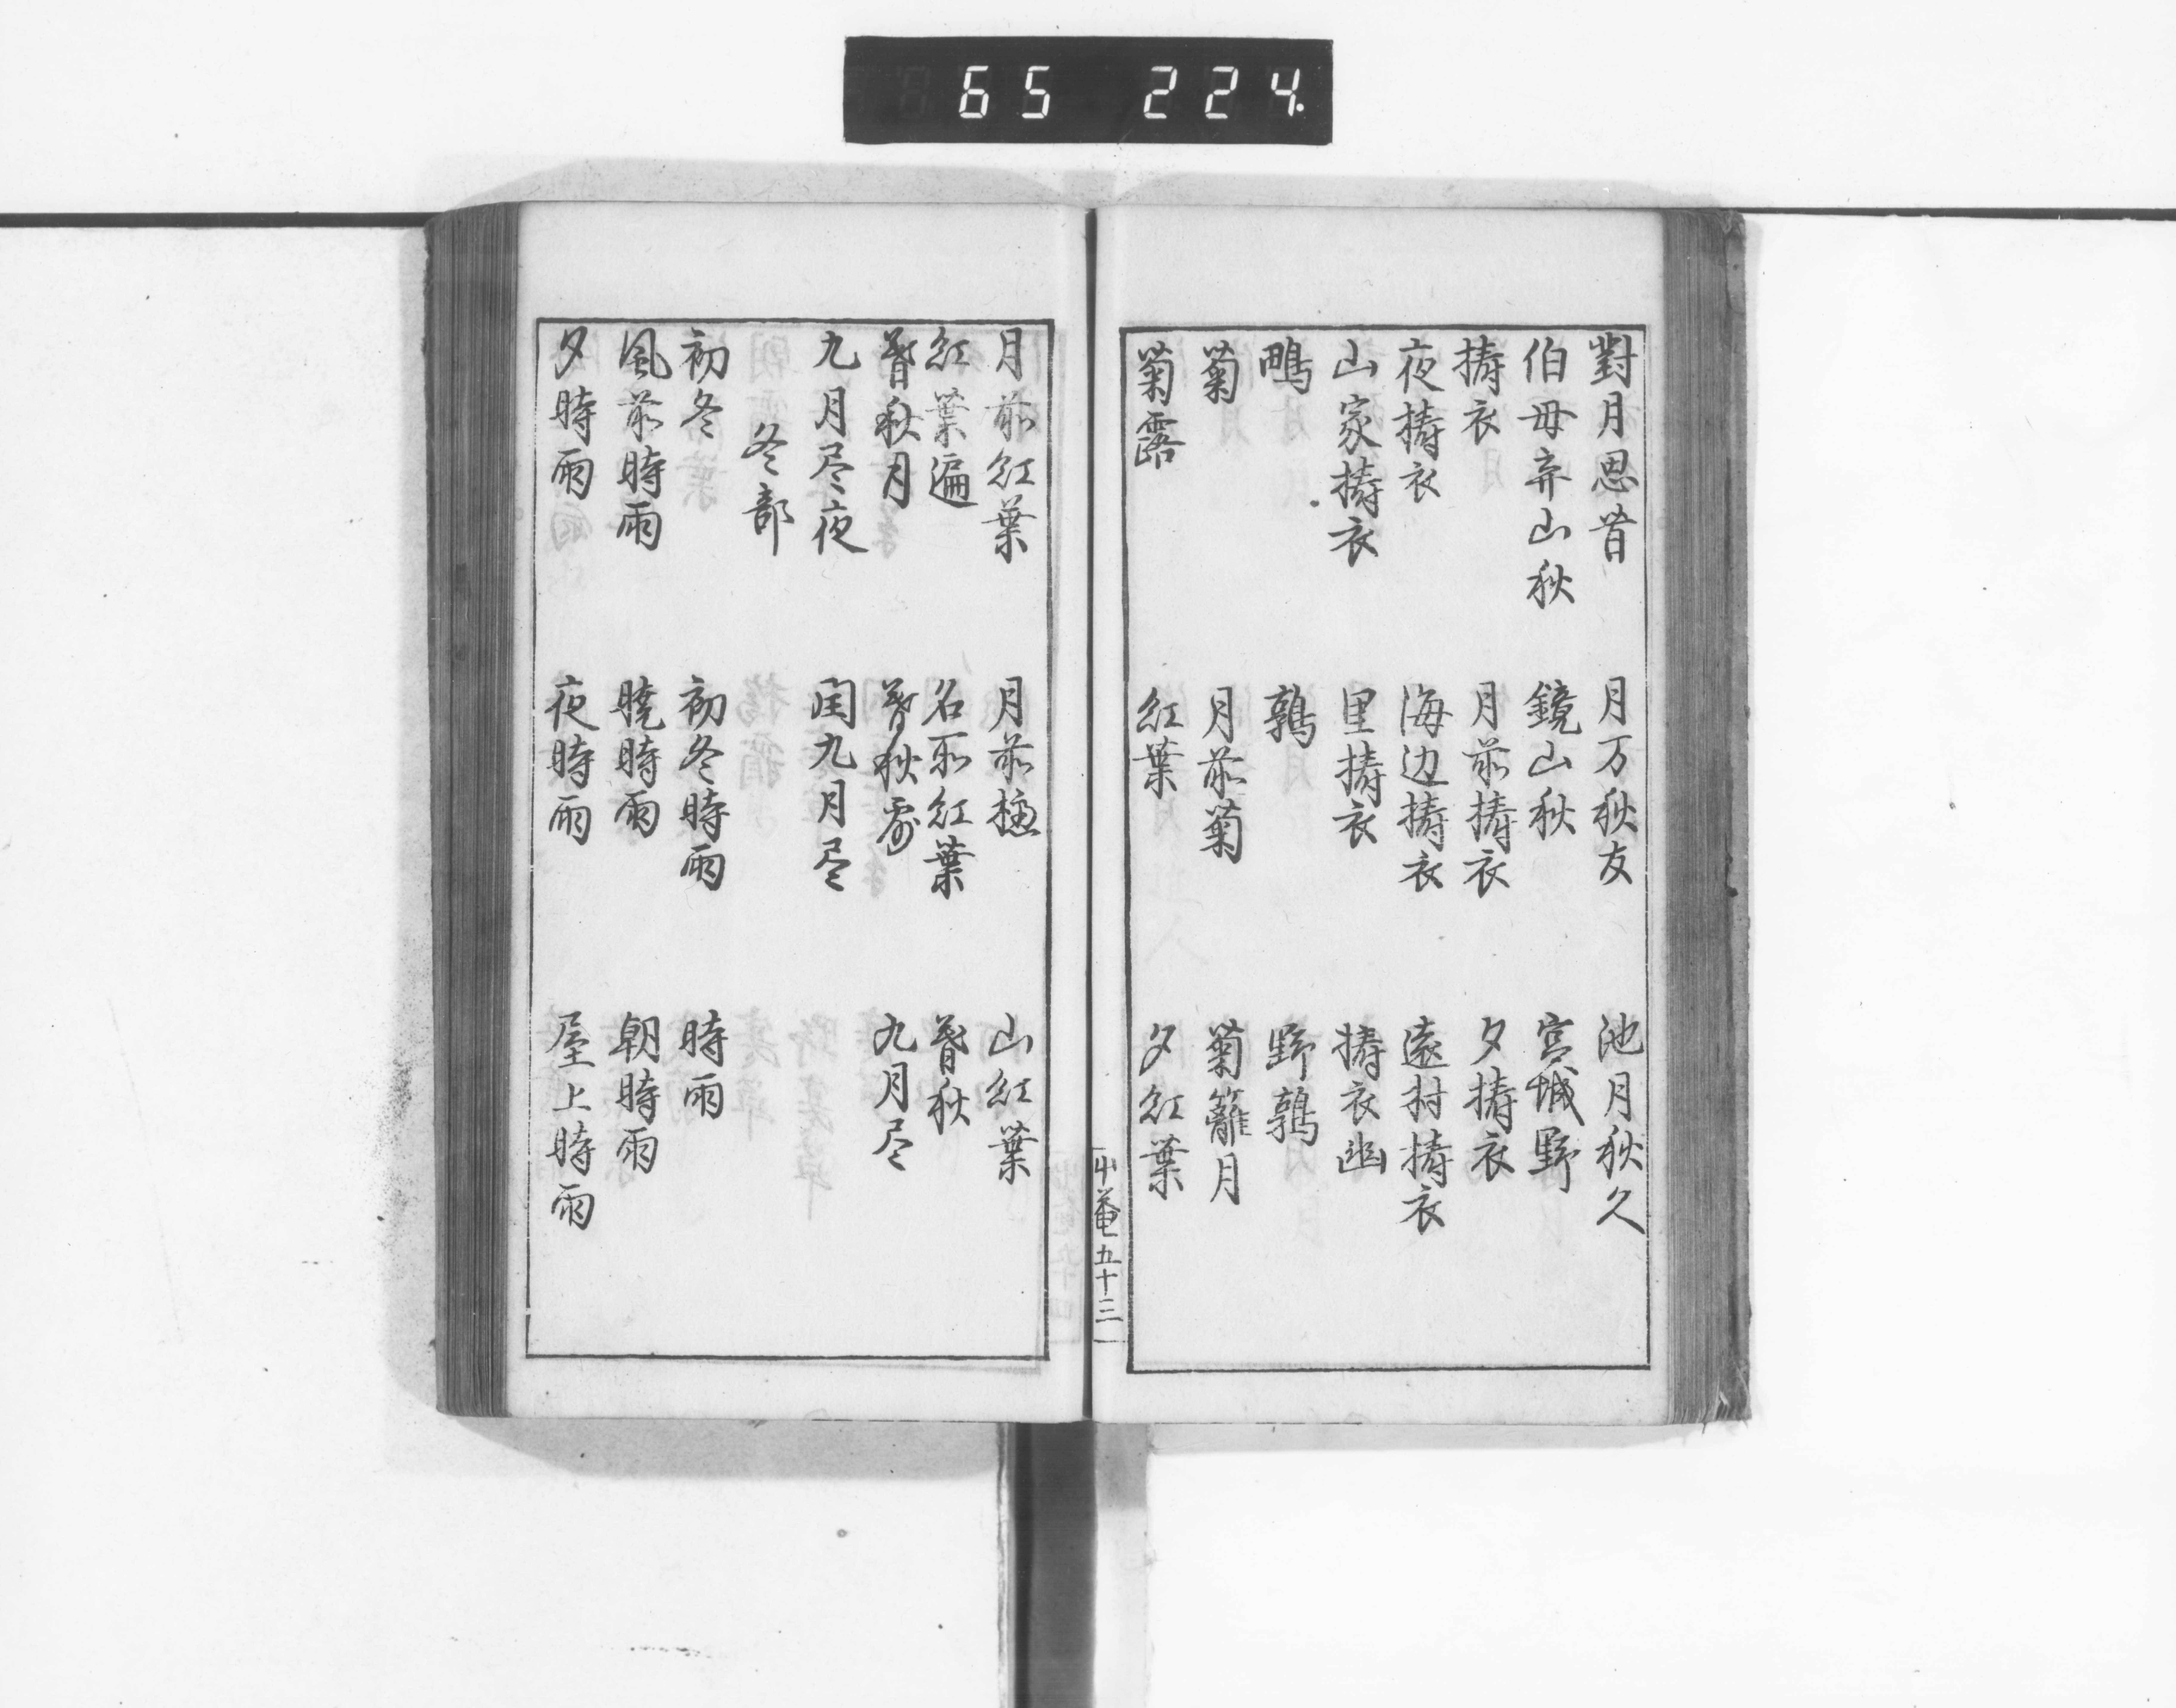 65 224
對月思昔 月万秋友 池月秋久
伯母弃山秋 鏡山秋 宮城野
擣衣 月前擣衣 夕擣衣
夜擣衣 海辺擣衣 遠村擣衣
山家擣衣 里擣衣 擣衣幽
鴫 鶉 野鶉
菊 月前菊 菊籬月
菊露 紅葉 夕紅葉
草菴五十三
月前紅葉 月前 山紅葉
紅葉遍 名所紅葉 暮秋
暮秋月 暮秋 九月尽
九月尽夜 閏九月尽
冬部
初冬 初冬時雨 時雨
風前時雨 曉時雨 朝時雨
夕時雨 夜時雨 屋上時雨